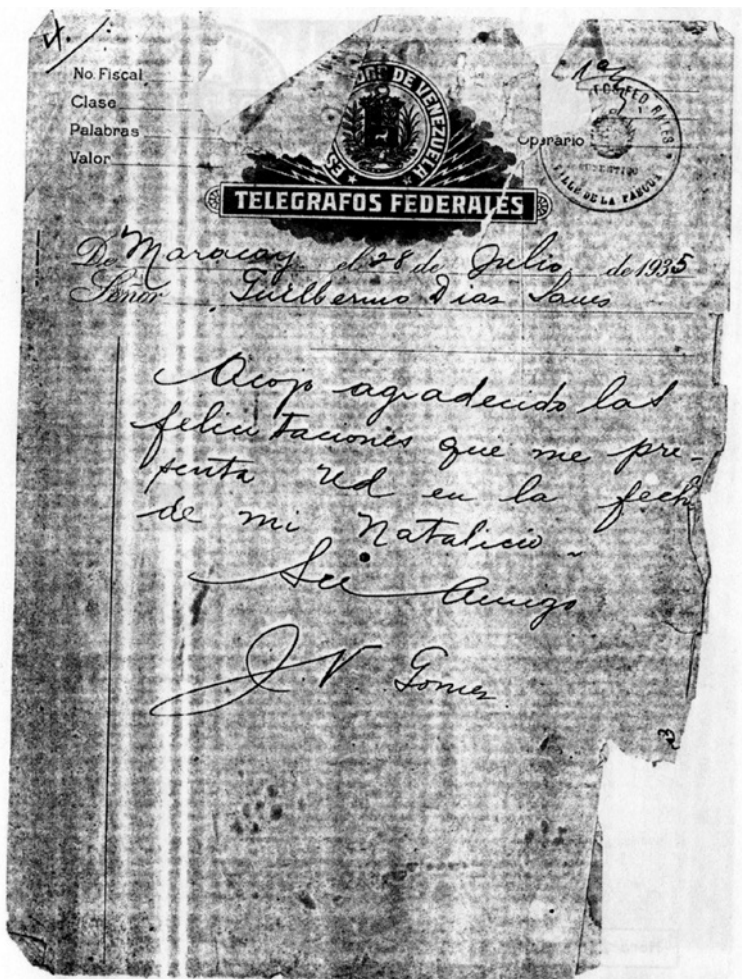 No. Fiscal
Clase
Palabras
Valor
Operario
DE VENEZUELA
ES
TELEGRAFOS FEDERALES
VALLE DE LA PASCUA
De Maracay el 28 de Julio de 1935
Señor Guillermo Dias
Acojo agradecido las
felicitaciones que me pre-
senta Ud en la fech
de mi Natalicio
Su Amigo
J V Gomez